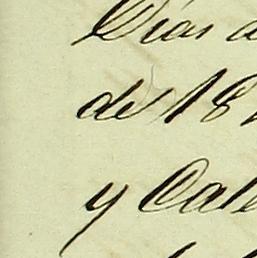 Dias
de 18
y Cal